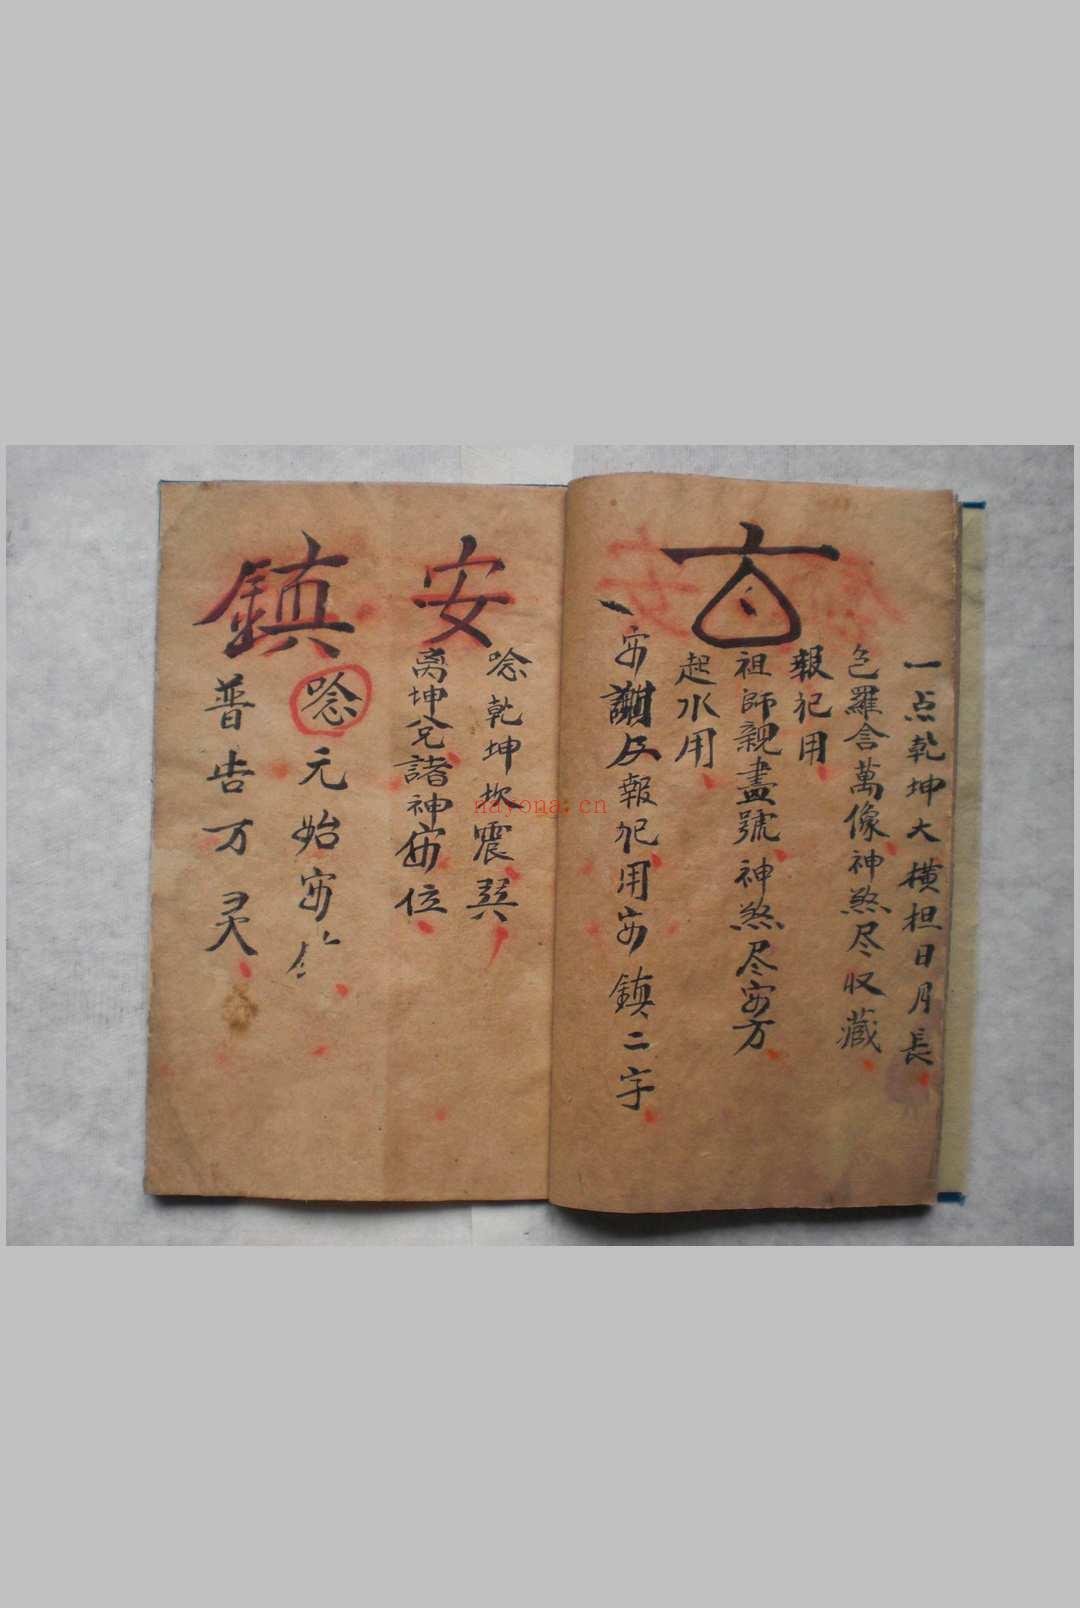 一点乾坤大横担日月長
包羅含萬像神煞尽収藏
報祀用
祖師親畫號神煞尽安方
起水用
安謝及報祀用安鎮二字
安
唸乾坤坎震巽
离坤兑諸神安位
鎮
唸元始安鎮
普告万灵
nayona.cn